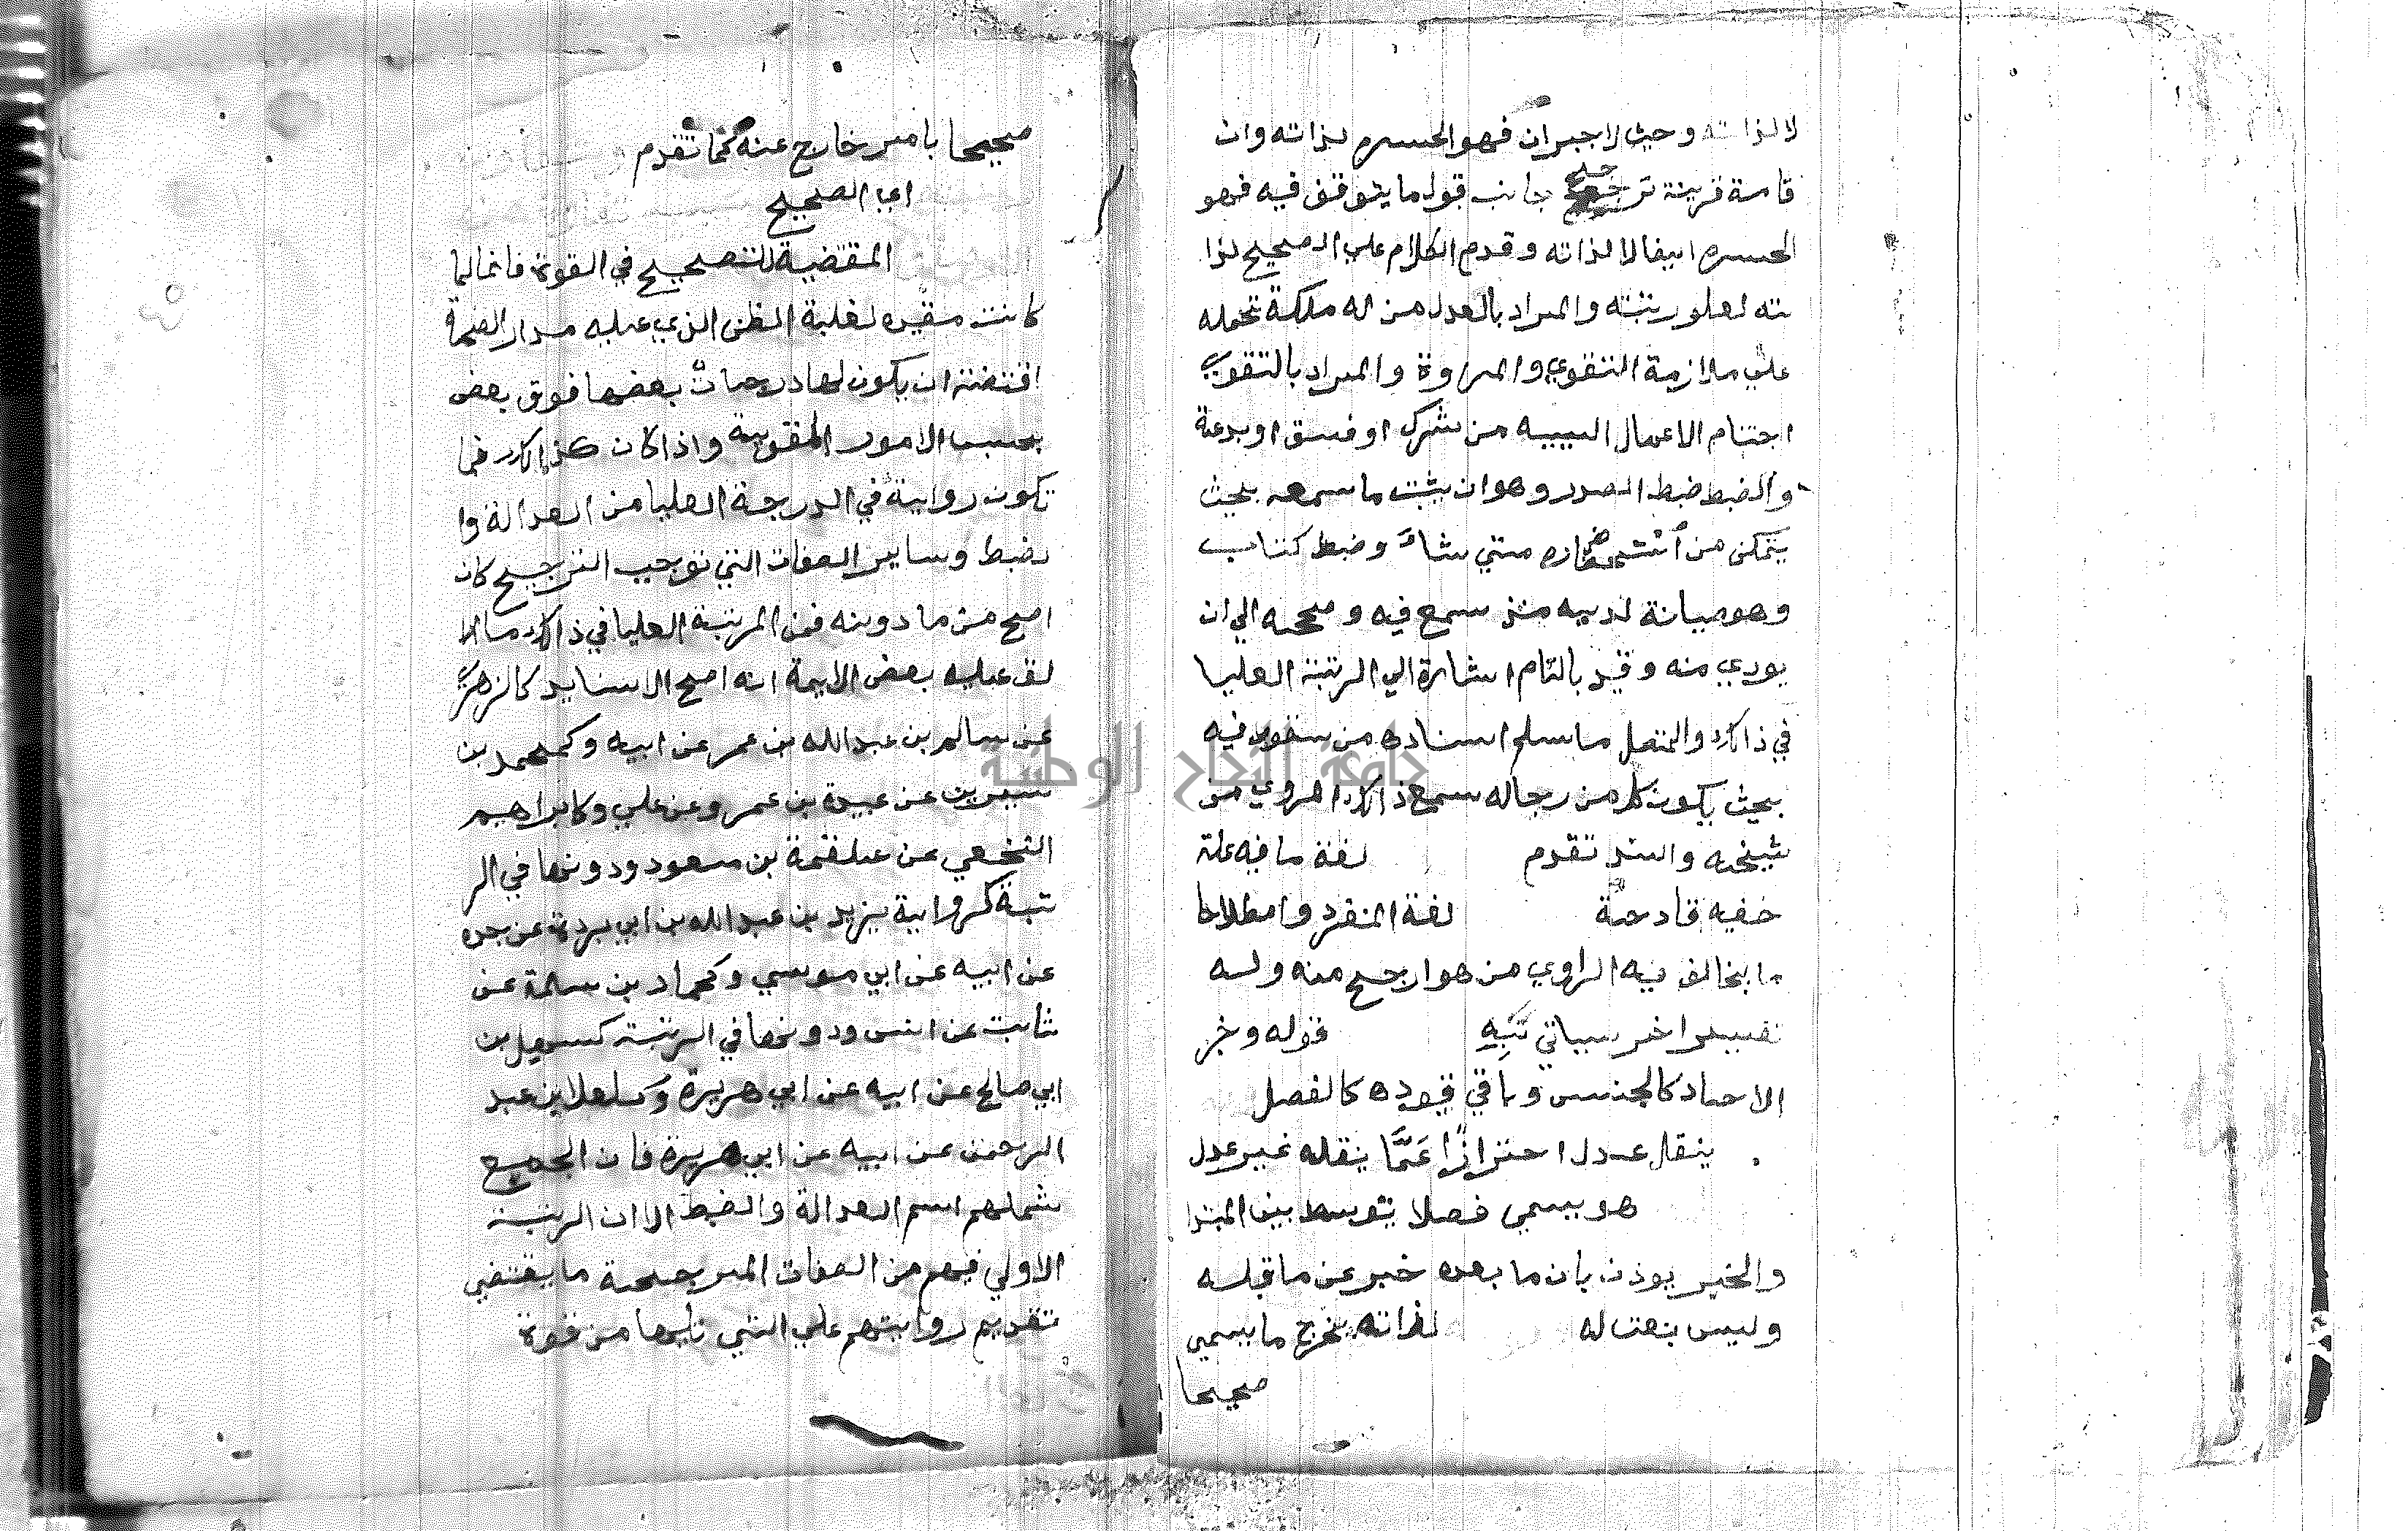 لا لذاته وحيث لا جبران فهو الحسن لذاته وان
قامة قرينة ترجح جانب قول ما يتوقف فيه فهو
الحسن ايضا لا لذاته وقدم الكلام علي الصحيح لذا
ته لعلو رتبته والمراد بالعدل من له ملكة تحمله
علي ملازمة التقوي والمروة والمراد بالتقوي
اجتنام الاعمال السيية من شرك او فسق او بدعة
والضبط ضبط الصدر وهو ان يثبت ما سمعه بحيث
يتمكن من استحضاره متي شاء وضبط كتاب
وهو صيانة لديه منذ سمع فيه وصححه الي ان
يودي منه وقيد بالتام اشارة الي الرتبة العليا
في ذالك والمتصل ما سلم اسناده من سقوط فيه
بحيث يكون كل من رجاله سمع ذالك المروي من
شيخه والسند تقدم لغة ما فيه علة
خفيه قادحة لغة المنفرد واصطلاحا
ما يخالف فيه الراوي من هو ارجح منه وله
تفسير اخر سياتي تنبيه قوله وخبر
الاحاد كالجنس وباقي قيوده كالفصل
ينقل عدل احترازا عَمَّا ينقله غير عدل
هو يسمي فصلا يتوسط بين المبتدا
والخبر يوذن بان ما بعده خبر عن ما قبله
وليس بنعت له لذاته يخرج ما يسمي
صحيحا
صحيحا بامر خارج عنه كما تقدم
اي الصحيح
المقتضية للتصحيح في القوة فانها لما
كانت مفيده لغلبة الظن الذي عليه مدار الصحة
اقتضت ان يكون لها درجات بعضها فوق بعض
بحسب الامور المقوية واذا كان كذالك فما
تكون رواية في الدرجة العليا من العدالة وا
لضبط وساير الصفات التي توجب الترجيح كان
اصح من ما دونه فمن المرتبة العليا في ذالك ما ا
لق عليه بعض الايمة انه اصح الاسانيد كالزهري
عن سالم بن عبد الله بن عمر عن ابيه وكمحمد بن
سيرين عن عبيدة بن عمرو عن علي وكابراهيم
النخعي عن علقمة بن مسعود ودونها في الر
تبة كرواية يزيد بن عبد الله بن ابي بردة عن جده
عن ابيه عن ابي موسي وكحماد بن سلمة عن
ثابت عن انس ودونها في الرتبة كسهيل بن
ابي صالح عن ابيه عن ابي هريرة وكالعلا بن عبد
الرحمن عن ابيه عن ابي هريرة فان الجميع
شملهم اسم العدالة والضبط الا ان الرتبة
الاولي فيهم من الصفات المرجحة ما يقتضي
تقديم روايتهم علي التي تليها من قوة
جامعة النجاح الوطنية